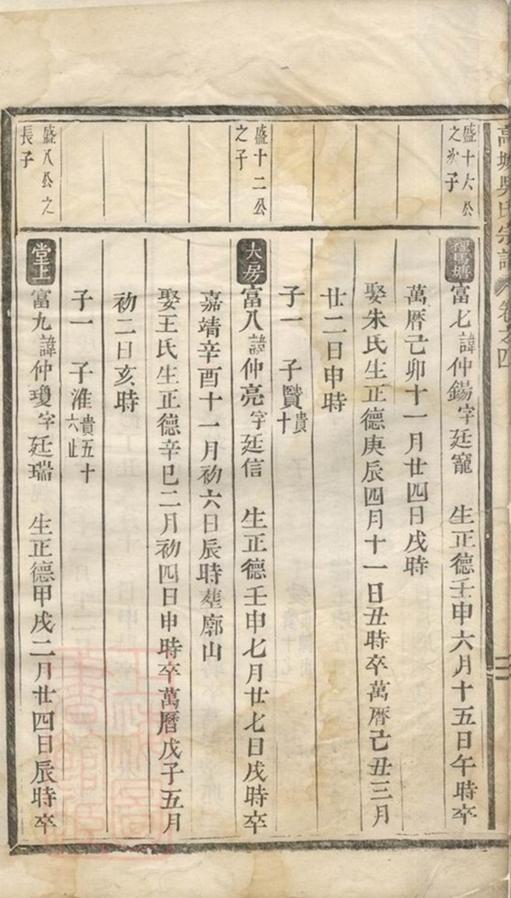 高塘吳氏宗譜 卷之四
盛十六公
之次子
禮馬塘 富七諱仲錫字廷寵 生正德壬申六月十五日午時卒
萬曆己卯十一月廿四日戌時
娶朱氏生正德庚辰四月十一日丑時卒萬曆己丑三月
廿二日申時
子一 子賢貴十
盛十二公
之子
大房 富八諱仲亮字廷信 生正德壬申七月廿七日戌時卒
嘉靖辛酉十一月初六日辰時塟廓山
娶王氏生正德辛巳二月初四日申時卒萬曆戊子五月
初二日亥時
子一 子淮貴五十六止
盛八公之
長子
堂上 富九諱仲瓊字廷瑞 生正德甲戌二月廿四日辰時卒